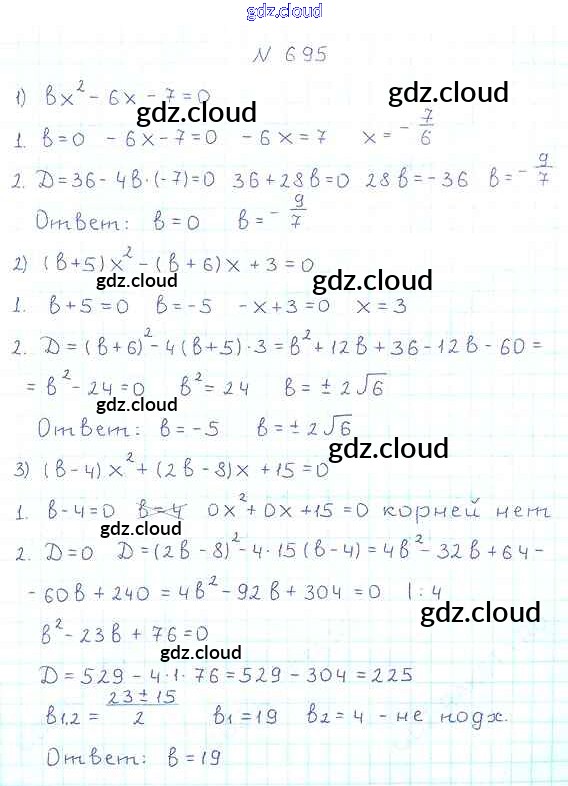 gdz.cloud
N 695
1) вx² - 6x - 7 = 0
gdz.cloud
gdz.cloud
1. в=0 - 6x - 7 = 0 - 6x = 7 x = - 7/6
2. D = 36 - 4в·(-7) = 0 36 + 28в = 0 28в = - 36 в = - 9/7
Ответ: в = 0 в = - 9/7
2) (в+5)x² - (в+6)x + 3 = 0
gdz.cloud
gdz.cloud
1. в+5=0 в=-5 -x+3=0 x=3
2. D = (в+6)² - 4(в+5)·3 = в² + 12в + 36 - 12в - 60 =
= в² - 24 = 0 в² = 24 в = ± 2√6
gdz.cloud
Ответ: в = -5 в = ± 2√6
gdz.cloud
3) (в-4)x² + (2в-8)x + 15 = 0
1. в-4=0 в=4 0x² + 0x + 15 = 0 корней нет
gdz.cloud
2. D=0 D = (2в-8)² - 4·15(в-4) = 4в² - 32в + 64 -
- 60в + 240 = 4в² - 92в + 304 = 0 |:4
в² - 23в + 76 = 0
gdz.cloud
D = 529 - 4·1·76 = 529 - 304 = 225
в1,2 = 23±15/2 в1 = 19 в2 = 4 - не подх.
Ответ: в = 19
gdz.cloud
gdz.cloud